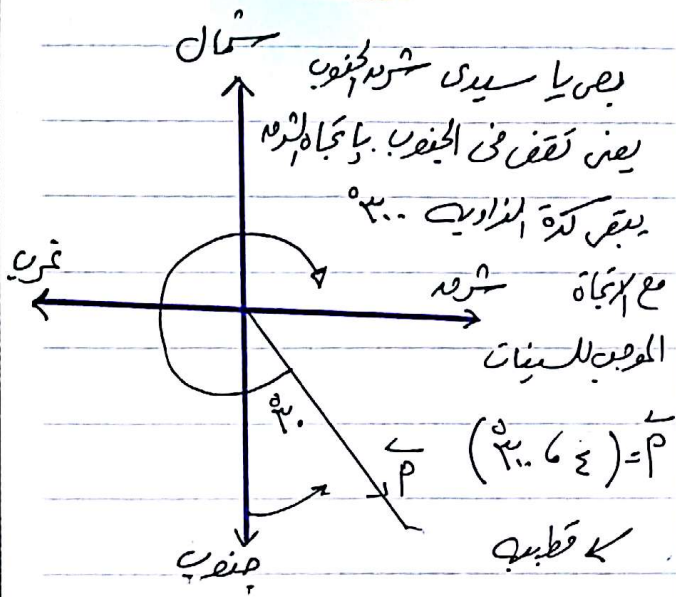 شمال
بص يا سيدى شرق الجنوب
يعنى تقف فى الجنوب بإتجاه الشرق
يبقى كدة الزاوية ٣٠٠°
مع الاتجاة
الموجب للسينات
غرب
شرق
٣٠°
م = (٤ ، ٣٠٠°)
م
قطبية
جنوب